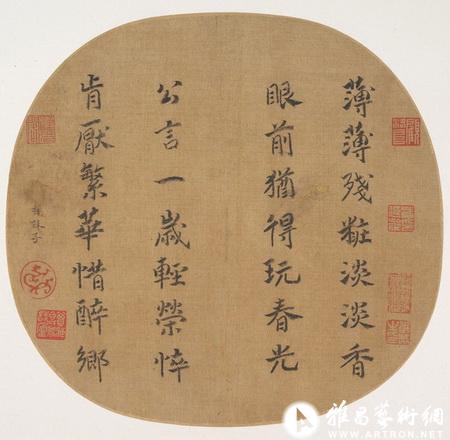 薄薄殘粧淡淡香
眼前猶得玩春光
公言一歲輕榮悴
肯厭繁華惜醉鄉
雅昌藝術網
WWW.ARTRON.NET